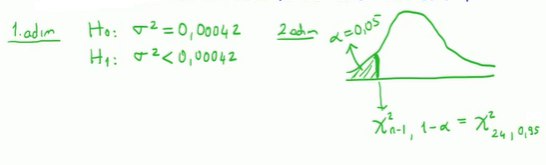 1.adım H₀: σ² = 0,00042
H₁: σ² < 0,00042
2.adım α=0,05
χ²ₙ₋₁, 1-α = χ²₂₄, 0,95